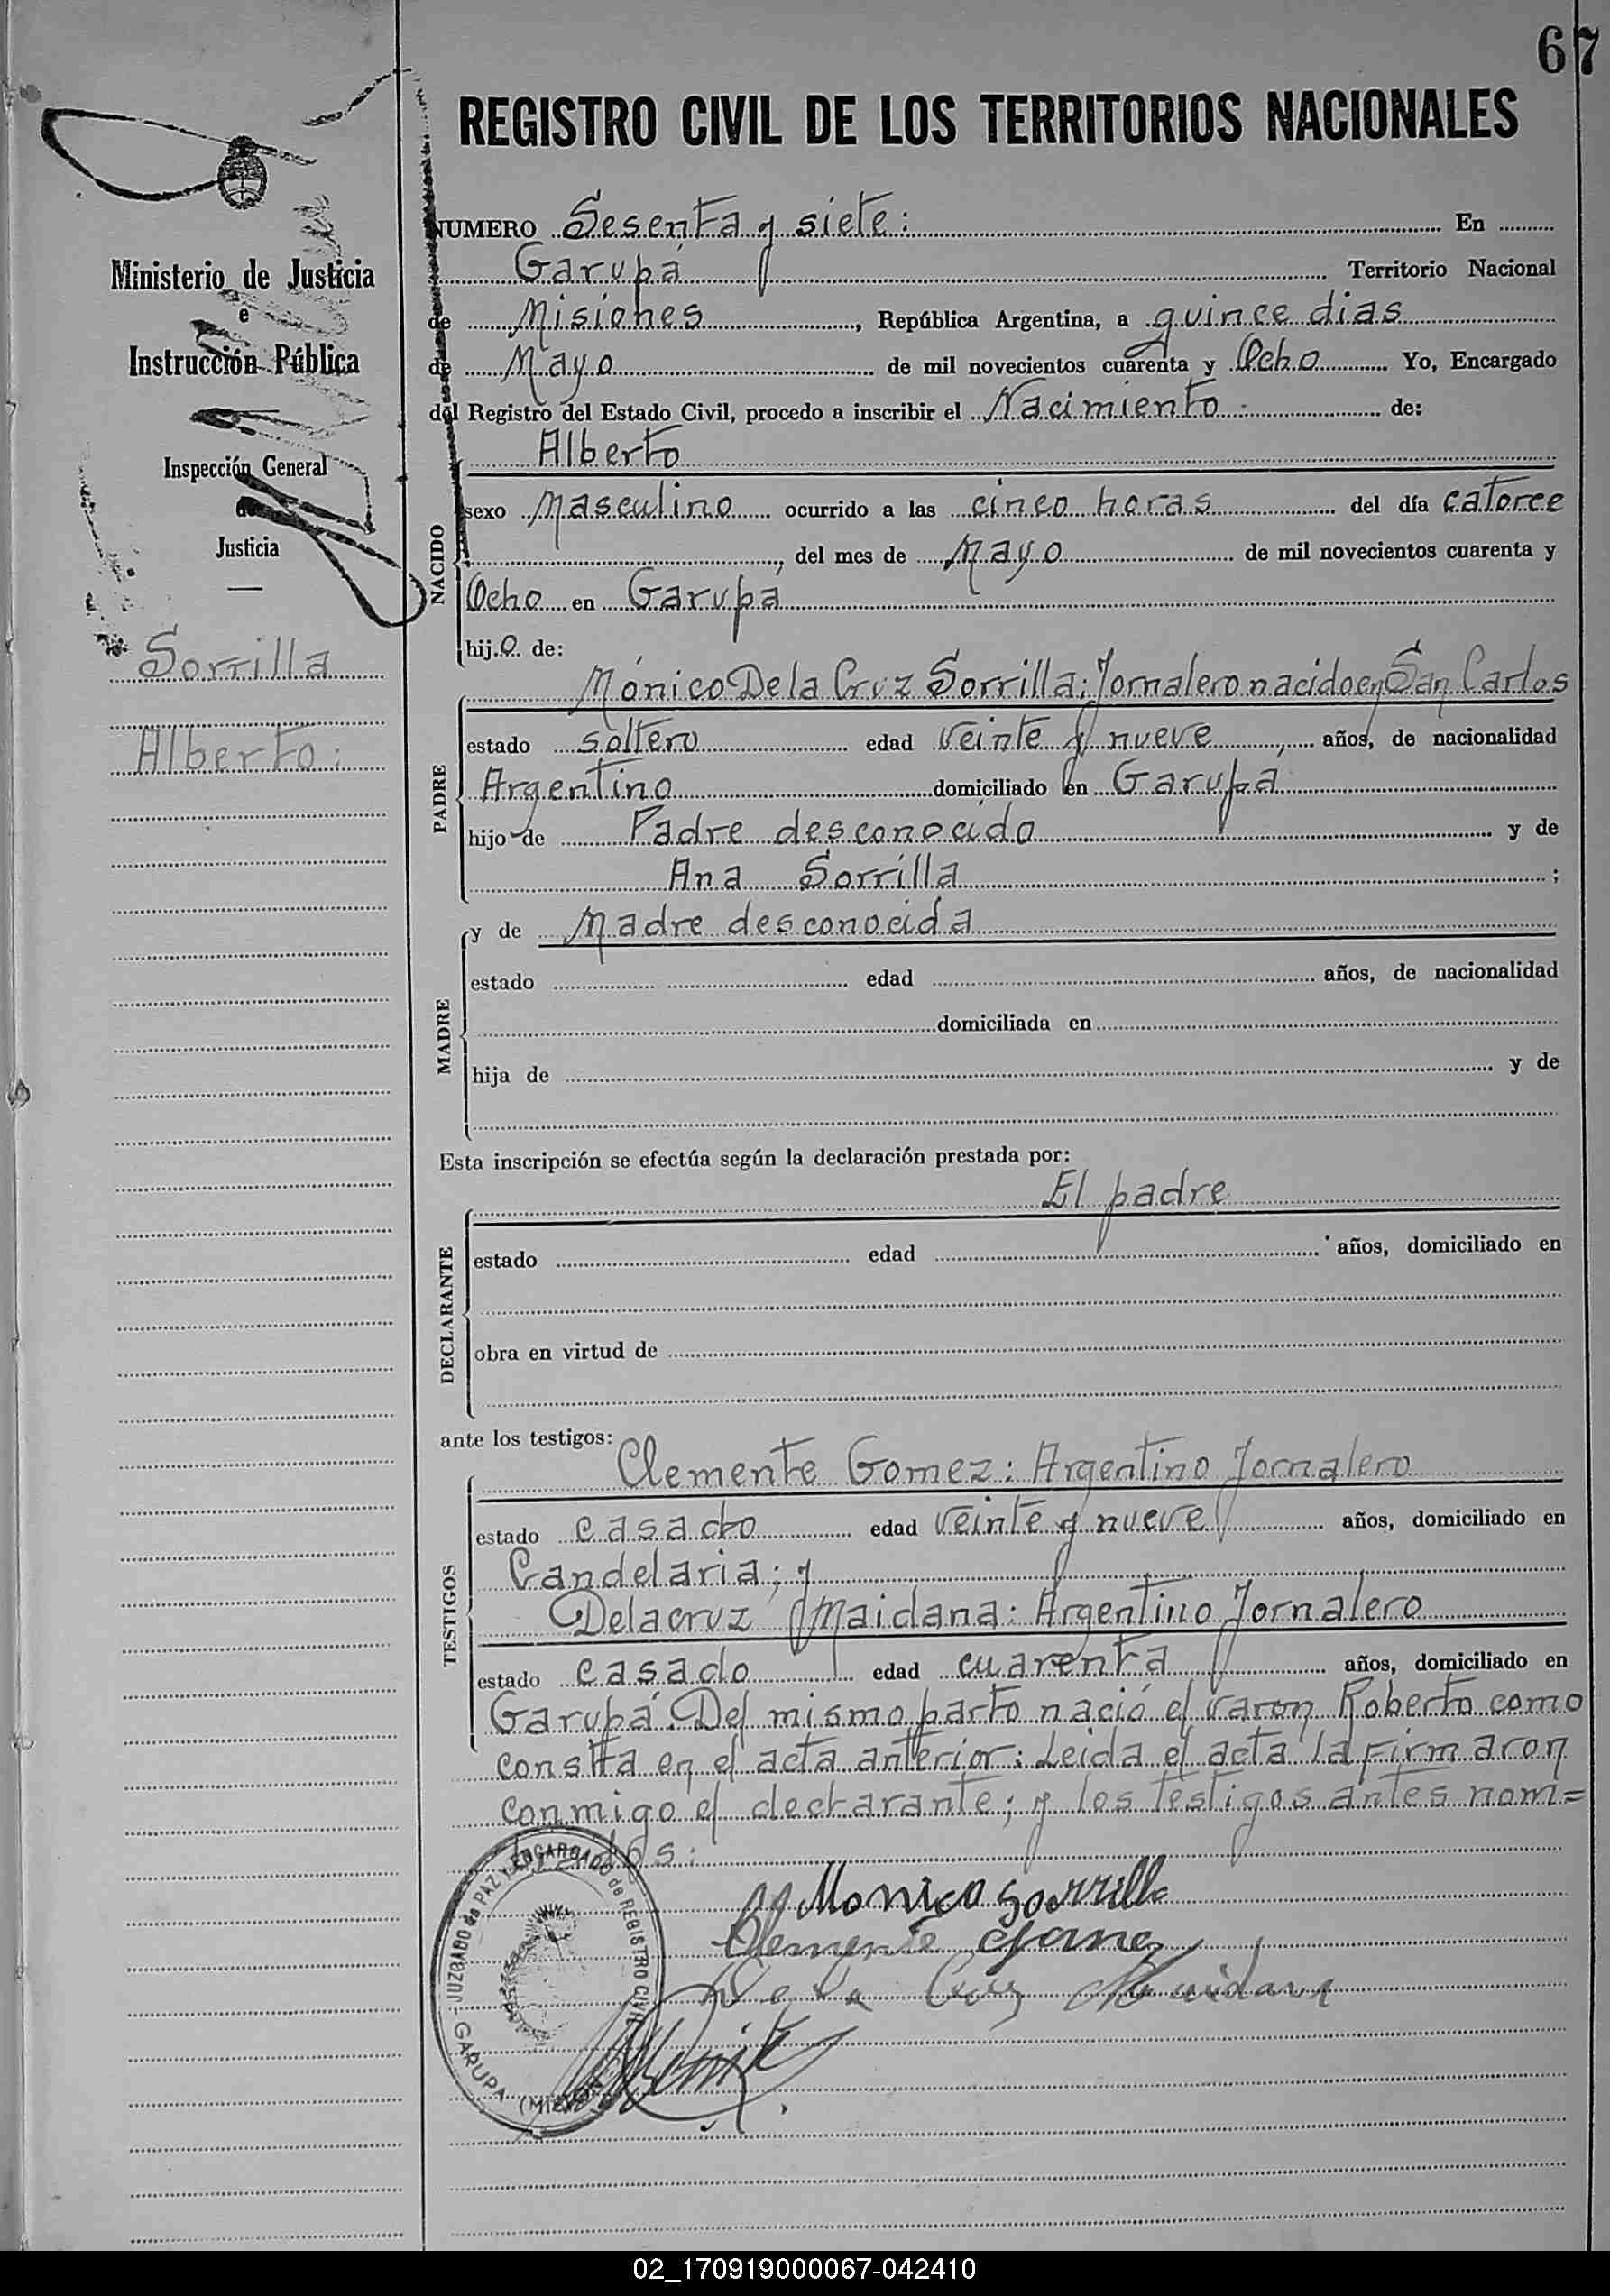 67
REGISTRO CIVIL DE LOS TERRITORIOS NACIONALES
Ministerio de Justicia
e
Instrucción Pública
Inspección General
de
Justicia
Sorrilla
Alberto:
NUMERO Sesenta y siete: En
Garupá Territorio Nacional
de Misiones, República Argentina, a quince dias
de Mayo de mil novecientos cuarenta y Ocho Yo, Encargado
del Registro del Estado Civil, procedo a inscribir el Nacimiento de:
NACIDO
Alberto
sexo Masculino ocurrido a las cinco horas del día catorce
, del mes de Mayo de mil novecientos cuarenta y
Ocho en Garupá
hij.o. de:
PADRE
Mónico De la Cruz Sorrilla: Jornalero nacido en San Carlos
estado soltero edad veinte y nueve, años, de nacionalidad
Argentino domiciliado en Garupá
hijo de Padre desconocido y de
Ana Sorrilla ;
MADRE
y de Madre desconocida
estado edad años, de nacionalidad
domiciliada en
hija de y de
Esta inscripción se efectúa según la declaración prestada por:
DECLARANTE
El padre
estado edad años, domiciliado en
obra en virtud de
ante los testigos:
TESTIGOS
Clemente Gomez: Argentino Jornalero
estado casado edad veinte y nueve años, domiciliado en
Candelaria; y
Delacruz Maidana: Argentino Jornalero
estado casado edad cuarenta años, domiciliado en
Garupá. Del mismo parto nació el varon Roberto como
constta en el acta anterior: Leida el acta la firmaron
conmigo el declarante; y los testigos antes nom=
brados:
Monico Sorrilla
Clemente Gomez
De la Cruz Maidana
JUZGADO de PAZ Y ENCARGADO de REGISTRO CIVIL
GARUPA (MISIONES)
02_170919000067-042410